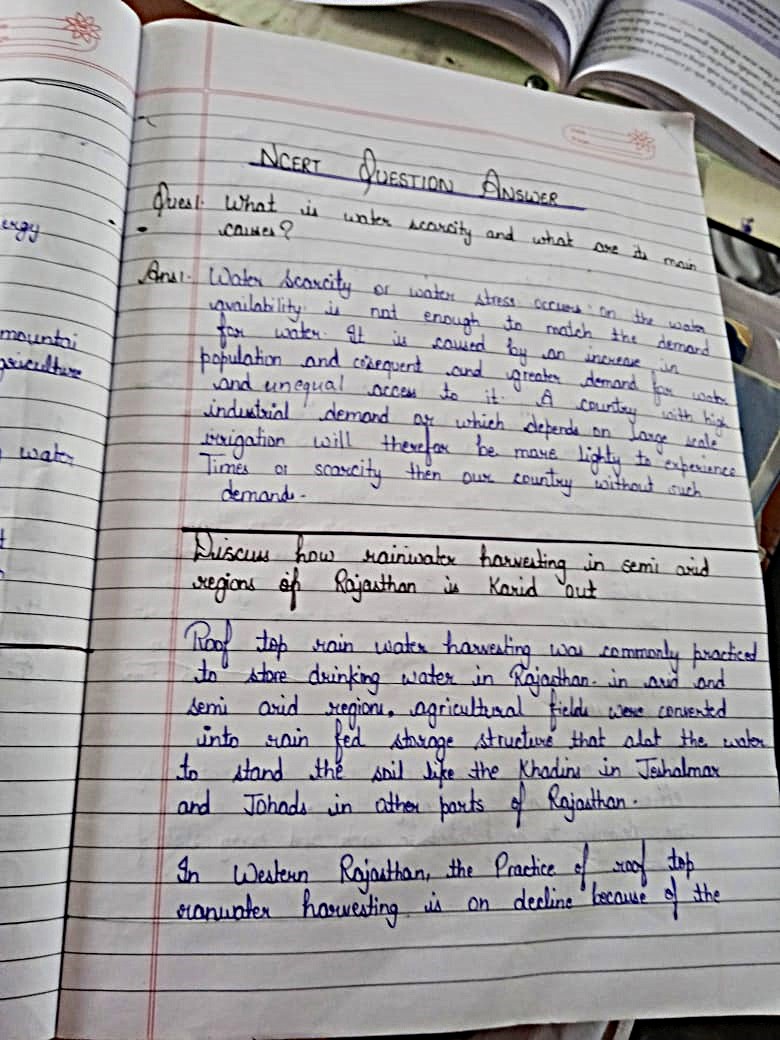 ergy
mountai
griculture
water
NCERT QUESTION ANSWER
Ques1. What is water scarcity and what are its main
causes?
Ans1. Water Scarcity or water stress occurs on the water
availability is not enough to match the demand
for water. It is caused by an increase in
population and cosequent and greater demand for water
and unequal access to it. A country with high
industrial demand or which depends on large scale
irrigation will therefor be more lighty to experience
Times or scarcity then our country without such
demands.
Discuss how rainiwater harvesting in semi arid
regions of Rajasthan is Karid out
Roof top rain water harvesting was commonly practiced
to store drinking water in Rajasthan. in arid and
semi arid regions, agricultural fields were converted
into rain fed storage structure that alat the water
to stand the soil like the Khadins in Jeshalmar
and Johads in other parts of Rajasthan.
In Western Rajasthan, the Practice of roof top
ranwater harvesting is on decline because of the